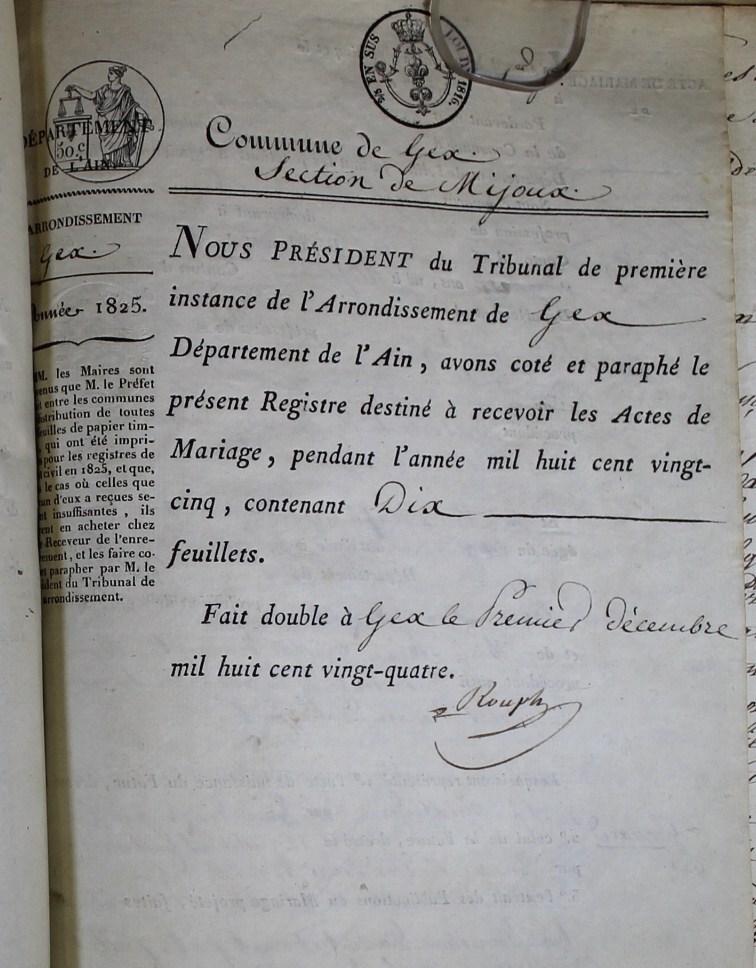 5/5 EN SUS
LOI DE 1816.
DÉPARTEMENT
50 C
DE L'AIN.
ARRONDISSEMENT
Gex.
Année 1825.
MM. les Maires sont
venus que M. le Préfet
entre les communes
distribution de toutes
feuilles de papier tim-
qui ont été impri-
pour les registres de
civil en 1825, et que,
le cas où celles que
d'eux a reçues se-
insuffisantes, ils
en acheter chez
Receveur de l'enre-
et les faire co-
parapher par M. le
du Tribunal de
arrondissement.
Commune de Gex.
Section de Mijoux.
NOUS PRÉSIDENT du Tribunal de première
instance de l'Arrondissement de Gex
Département de l'Ain, avons coté et paraphé le
présent Registre destiné à recevoir les Actes de
Mariage, pendant l'année mil huit cent vingt-
cinq, contenant Dix
feuillets.
Fait double à Gex le Premier décembre
mil huit cent vingt-quatre.